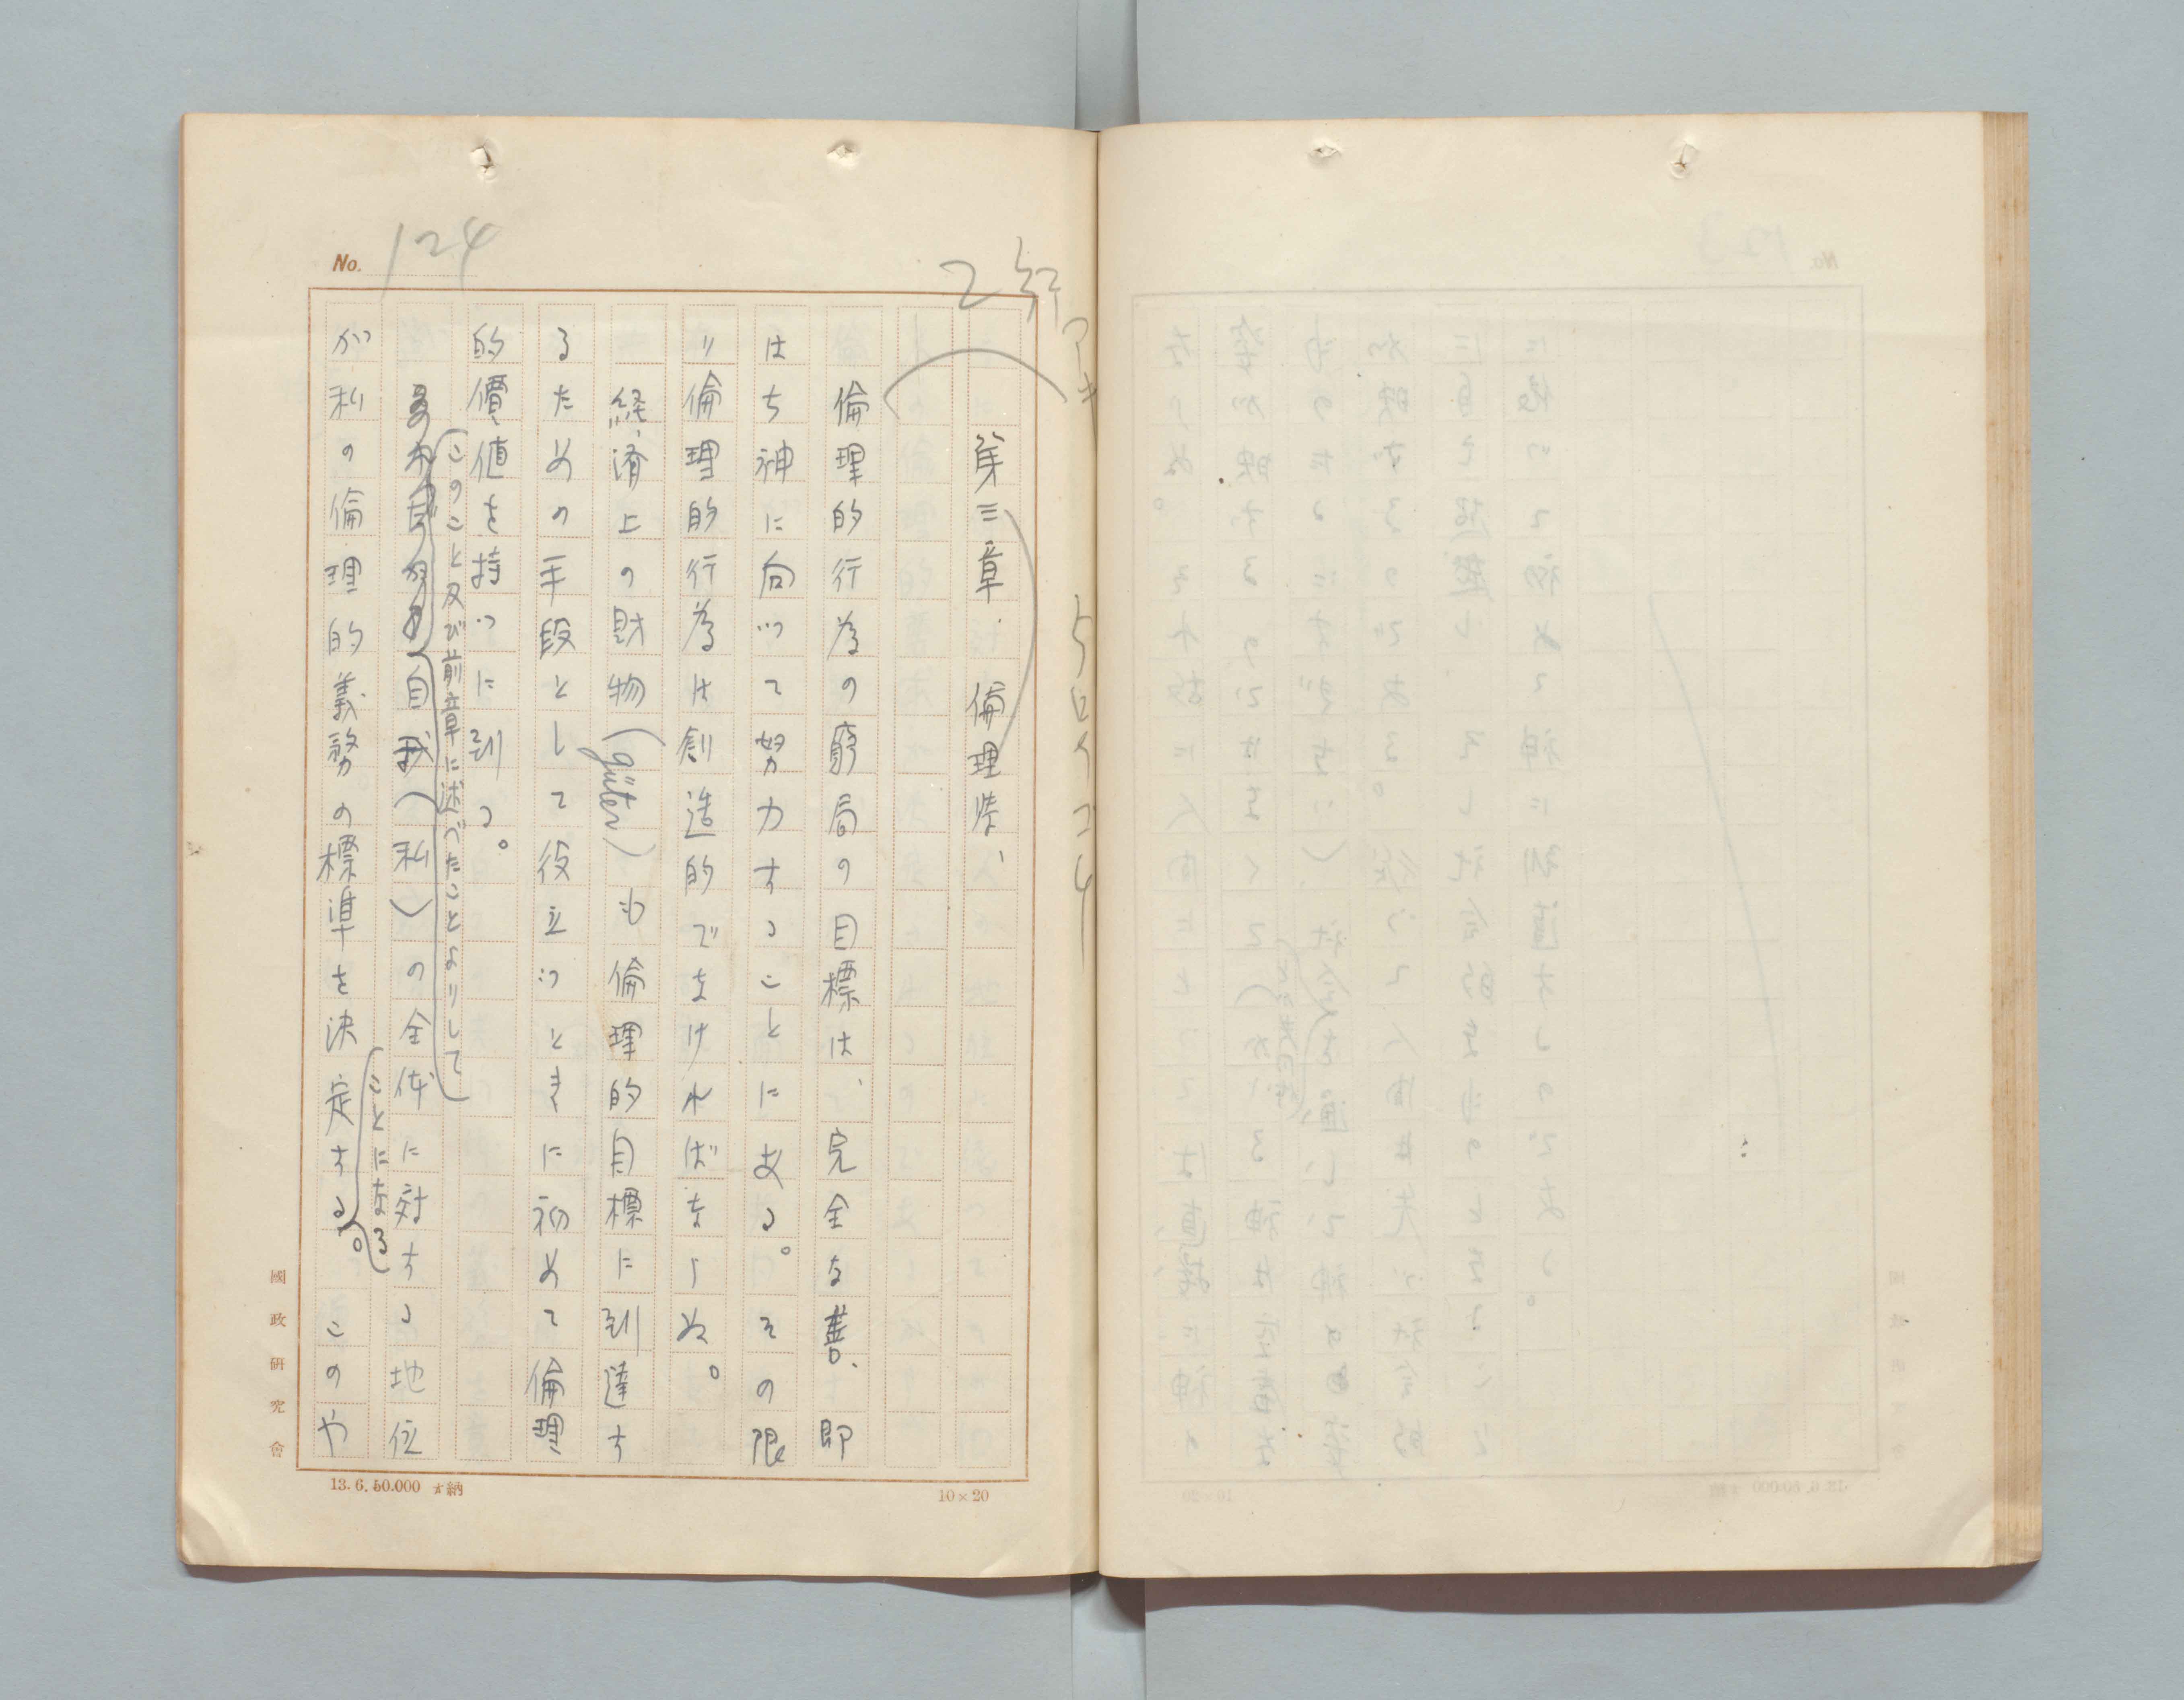 No. 124
2行アキ
5号4コ4
第三章、倫理学、
倫理的行為の窮局の目標は、完全な善、即
はち神に向つて努力することにある。その限
り倫理的行為は創造的でなければならぬ。
経済上の財物(güter)も倫理的目標に到達す
るための手段として役立つときに初めて倫理
的價値を持つに到る。
このこと及び前章に述べたことよりして
自我(私)の全体に対する地位
ことになる
が私の倫理的義務の標準を決定する。このや
國政研究會
13.6.50.000 納
10×20